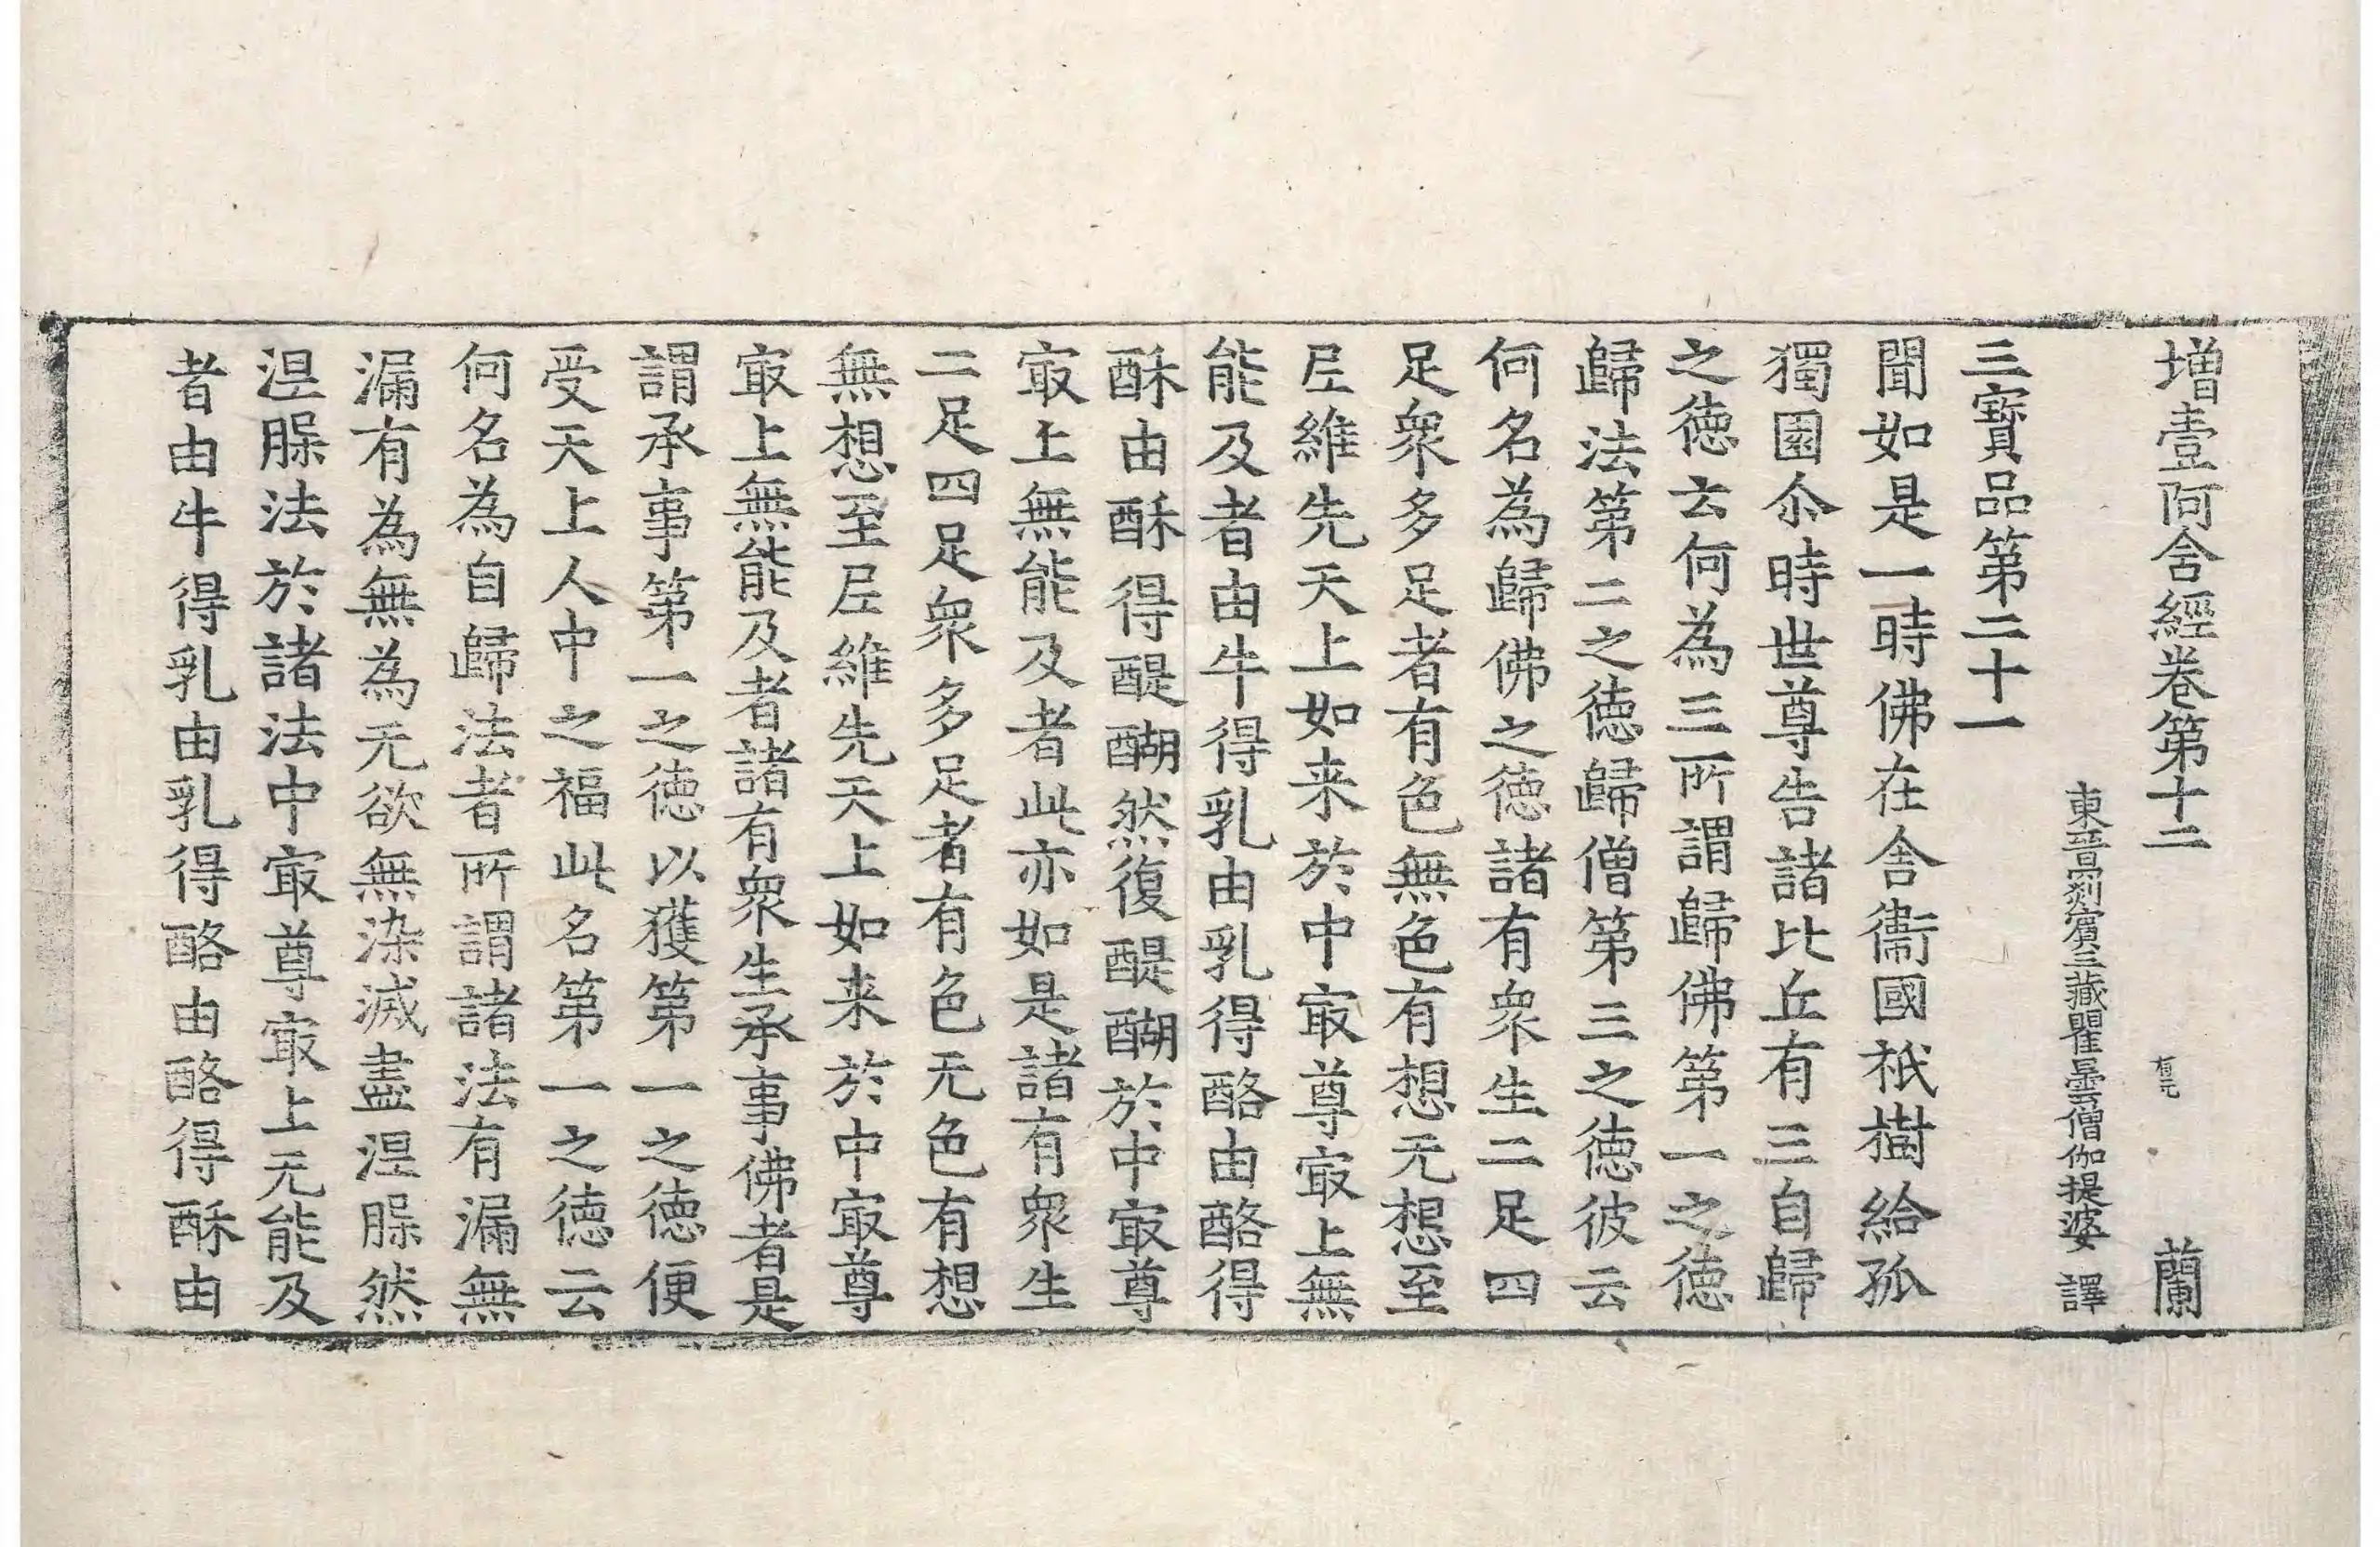 增壹阿含經卷第十二 有元 蘭
東晉罽賓三藏瞿曇僧伽提婆 譯
三寶品第二十一
聞如是一時佛在舍衞國祇樹給孤
獨園尒時世尊告諸比丘有三自歸
之德云何為三所謂歸佛第一之德
歸法第二之德歸僧第三之德彼云
何名為歸佛之德諸有衆生二足四
足衆多足者有色無色有想无想至
𡰱維先天上如来於中㝡尊㝡上無
能及者由牛得乳由乳得酪由酪得
酥由酥得醍醐然復醍醐於中㝡尊
㝡上無能及者此亦如是諸有衆生
二足四足衆多足者有色无色有想
無想至𡰱維先天上如来於中㝡尊
㝡上無能及者諸有衆生承事佛者是
謂承事第一之德以獲第一之德便
受天上人中之福此名第一之德云
何名為自歸法者所謂諸法有漏無
漏有為無為无欲無染滅盡涅槃然
涅槃法於諸法中㝡尊㝡上无能及
者由牛得乳由乳得酪由酪得酥由